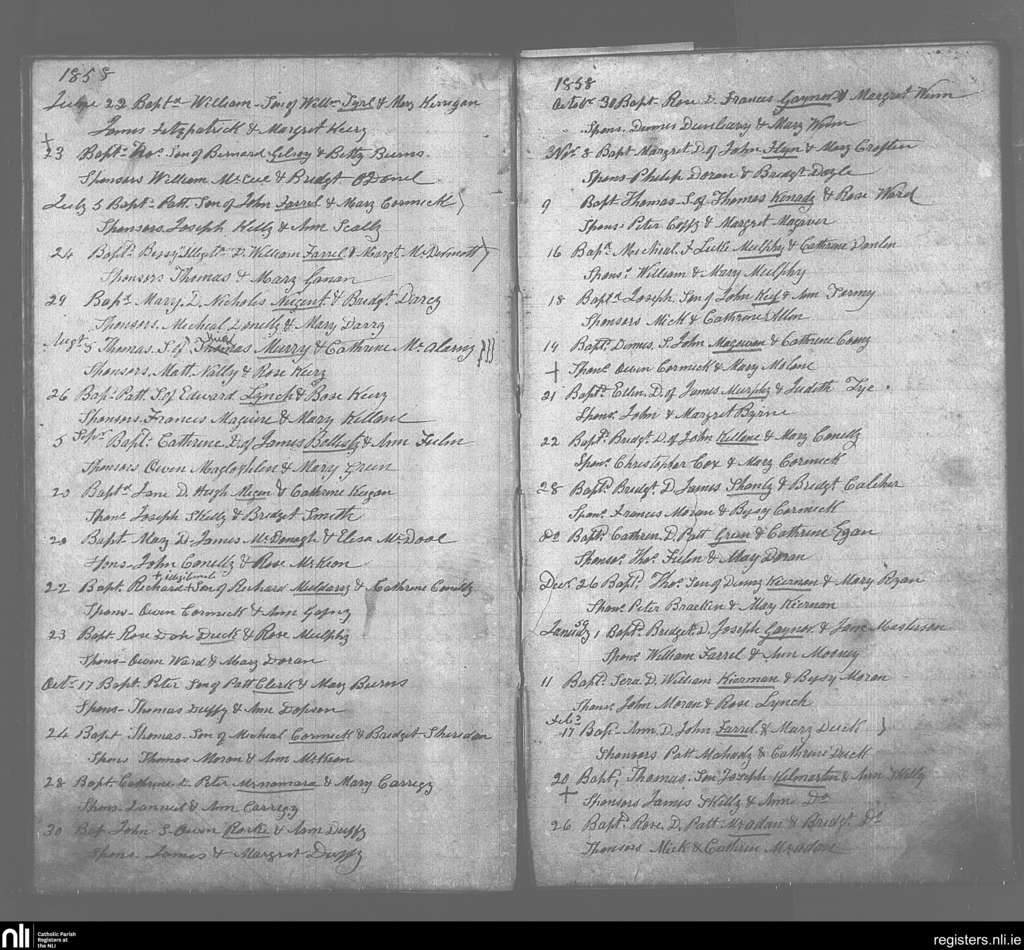 1858
June 22 Bapta William Son of Willm Tyrl & Mary Kerrigan
James Fitzpatrick & Margret Keery
+
23 Bapt. Tho. Son of Bernard Gilroy & Betty Burns.
Sponsors William McCue & Bridgt ODonel
July 5 Bapt. Patt. Son of John Farrel & Mary Cormick
Sponsors. Joseph Kelly & Ann Scally
24 Bapt. Bessy D. William Farrel & Margt. McDermott
Sponsors Thomas & Mary
29 Bapt. Mary D. Nicholas & Bridgt. Darcy
Sponsors. Micheal & Mary Darcy
Augt. 5 Thomas. S. of Thomas Murry & Cathrine
Sponsors. Matt. Nally & Rose Keery
26 Bapt. Patt. S. of Edward Lynch & Rose Keery
Sponsors. Francis Maguire & Mary
5 Sepr. Bapt. Cathrine D. of James & Ann
Sponsors Owen & Mary Green
20 Bapta. Jane D. Hugh & Cathrine Keegan
Spons. Joseph Skelly & Bridget Smith
20 Bapt. Mary D. James McDonagh & Elisa
Spons John Conelly & Rose McKeon
22 Bapt. Richard Son of Richard & Cathrine Conelly
Spons- Owen Cormick & Ann
23 Bapt. Rose D. of & Rose Mulphy
Spons- Owen Ward & Mary Doran
Octr. 17 Bapt. Peter Son of Patt Clerk & Mary Burns
Spons- Thomas Duffy & Ann
24 Bapt. Thomas. Son of Micheal Cormick & Bridget Sheredan
Spons Thomas Moran & Ann McKeon
28 Bapt. Cathrine D. Peter & Mary
Spons & Ann
30 Bap. John S. Owen Rorke & Ann Duffy
Spons. James & Margret Duffy
1858
Octobr. 30 Bapt. Rose D. Francis Gaynor & Margret Winn
Spons. Dennis Dunleavy & Mary Winn
Novr. 8 Bapt. Margret D. of John Flyn & Mary Croften
Spons Philip Doran & Bridgt. Doyle
9 Bapt Thomas. S. of Thomas Kenady & Rose Ward
Spons Peter & Margret
16 Bapt. Micheal. S Luke Mulphy & Cathrine
Spons. William & Mary Mulphy
18 Bapta Joseph. Son of John & Ann
Sponsors Mick & Cathrine Allen
14 Bapt. Dennis. S. John & Cathrine
+ Spons. Owen Cormick & Mary
21 Bapt. Ellen. D. of James Murphy & Judith Tye.
Spons. John & Margret Byrne
22 Bapt. Bridgt. D. of John & Mary Conelly
Spons. Christopher Cox & Mary Cormick
28 Bapt. Bridgt. D. James & Bridgt
Spons. Francis Moran & Bysy Cormick
Do Bapt. Cathren. D. Patt Green & Cathrine Egan
Sponsr. Tho. & May Doran
Decr. 26 Bapt. Tho. Son of Kiernan & Mary Ryan
Spons. Peter Bracken & Mary Kiernan
59
January 1 Bapt. Bridget. D. Joseph Gaynor & Jane Masterson
Spons. William Farrel & Ann Mooney
11 Bapt. Sera. D. William Kierman & Bysy Moran
Spons. John Moran & Rose Lynch
Feb
17 Bapt. Ann. D. John Farrel & Mary
Sponsors Patt Mahady & Cathrine
20 Bapt. Thomas. Son Joseph Kilmartin & Ann Skelly
+ Sponsors James Skelly & Ann Do
26 Bapt. Rose. D. Patt & Bridgt. Do
Sponsors Mick & Cathrin
nli
Catholic Parish
Registers at
the NLI
registers.nli.ie